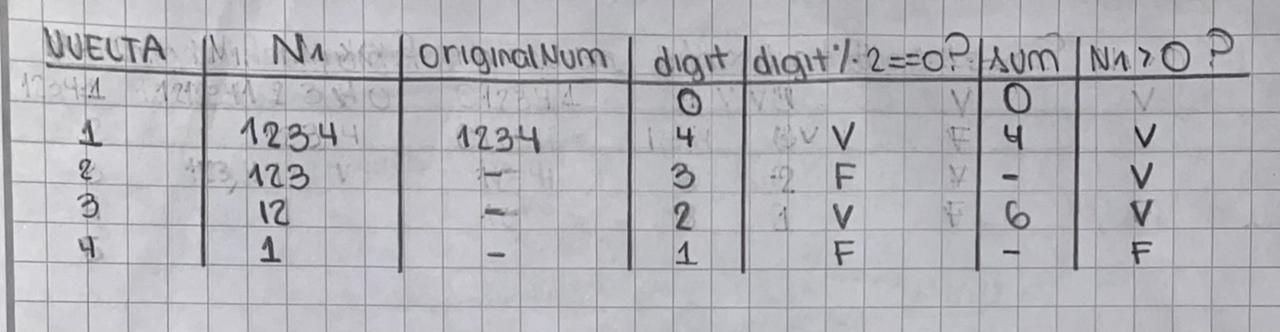 VUELTA N1 originalNum digit digit % 2==0? sum N1>0 ?
0 0
1 1234 1234 4 V 4 V
2 123 - 3 F - V
3 12 - 2 V 6 V
4 1 - 1 F - F